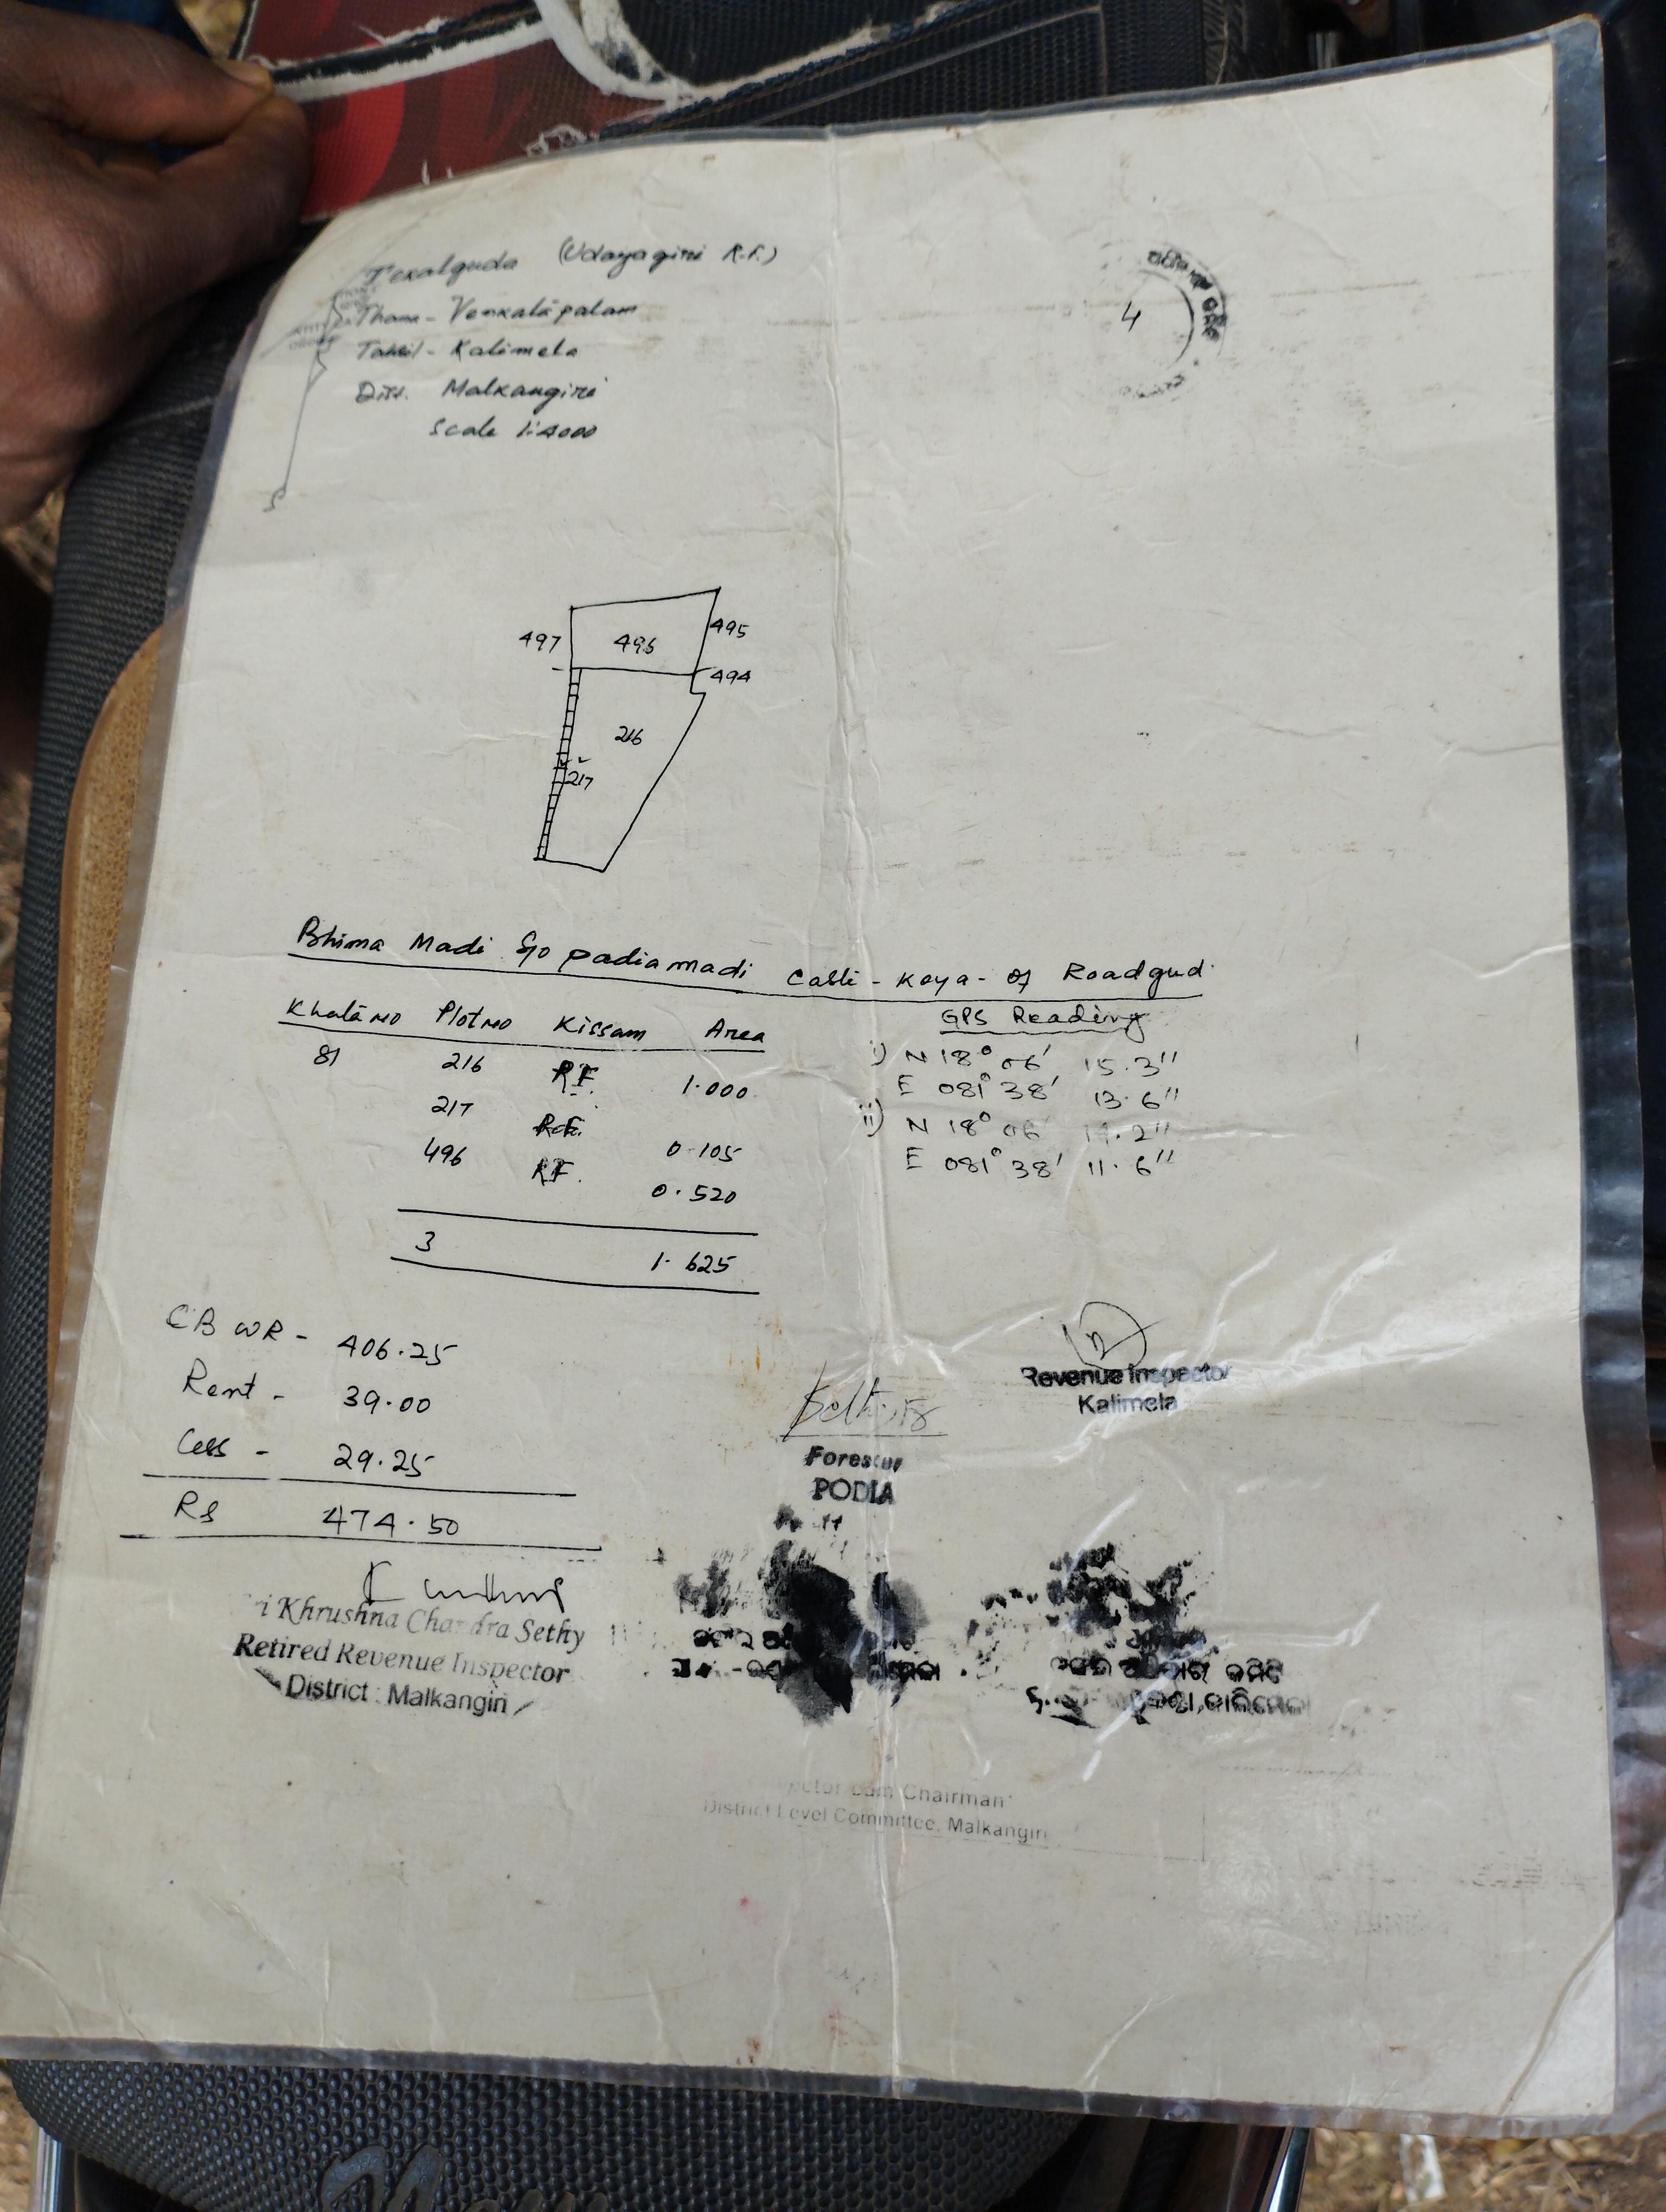 Texalguda (Udayagiri R.F.)
Thana - Venkatapalam
Tahsil - Kalimela
Dist. Malkangiri
Scale 1:4000
4
497
496
495
494
216
217
Bhima Madi S/o padia madi Caste - Koya - of Roadgud
Khata no Plot no Kissam Area
GPS Reading
81 216 R.F. 1.000
217 R.F. 0.105
496 R.F. 0.520
3 1.625
i) N 18° 06' 15.3"
E 081° 38' 13.6"
ii) N 18° 06' 14.2"
E 081° 38' 11.6"
CB WR - 406.25
Rent - 39.00
Cess - 29.25
Rs 474.50
Revenue Inspector
Kalimela
Forester
PODIA
Khrushna Chandra Sethy
Retired Revenue Inspector
District : Malkangiri
Chairman
District Level Committee, Malkangiri